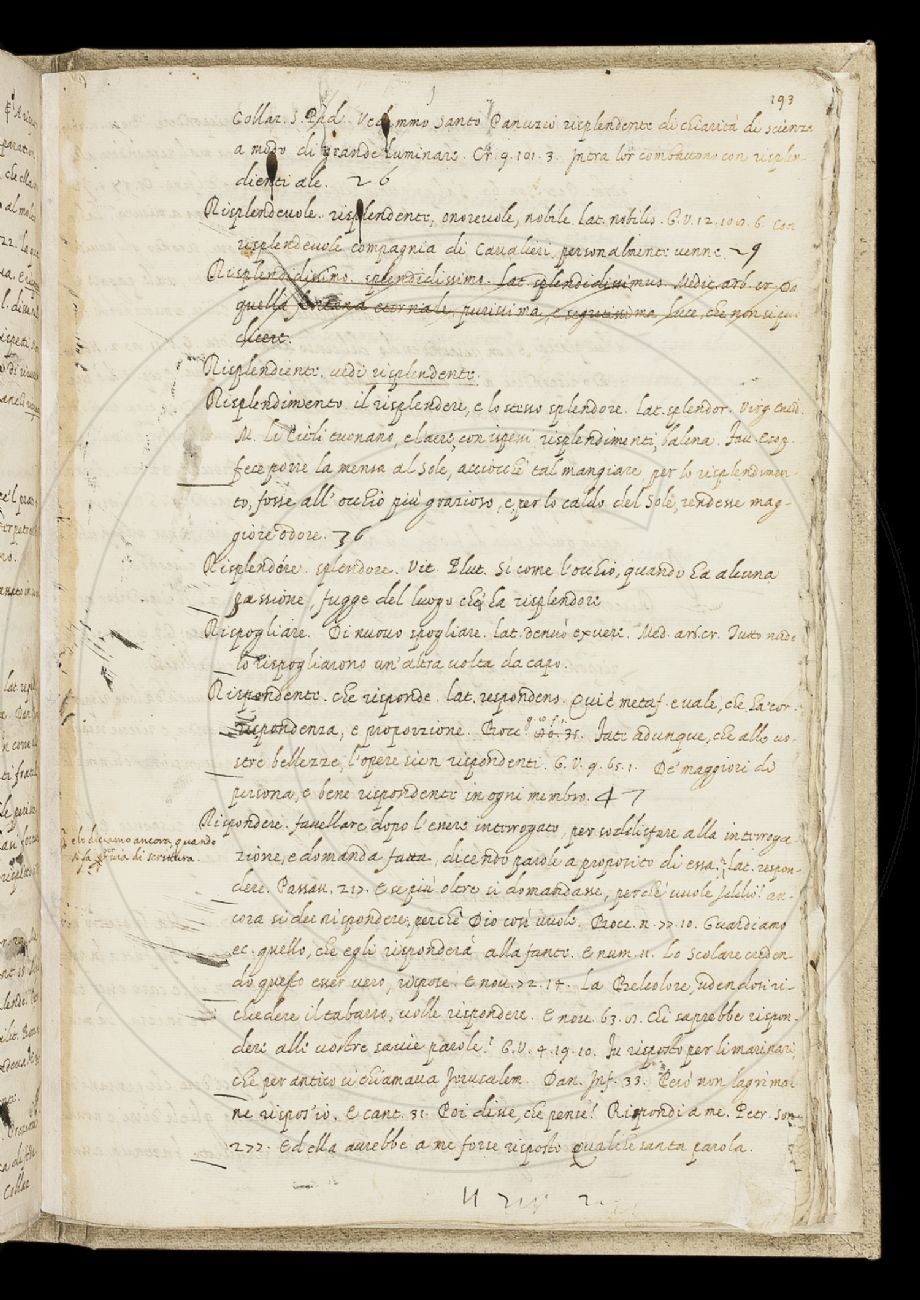 193
Collaz. S. Pad. Vedemmo Santo Panuzio risplendente di chiarità di scienza
a modo di grande luminare. Cr. 9. 101. 3. Intra lor combattono con risplen-
dienti ale. 26
Risplendevole. risplendente, onorevole, nobile. lat. nobilis. G. V. 12. 6. Con
risplendevole compagnia di Cavalieri personalmente venne. 29
Risplendidissimo. splendidissimo. lat. splendidissimus. Medit. arb. cr. Da
quella fontana eternale, purissima, luce, che non si può
dicere.
Risplendiente. vedi risplendente.
Risplendimento. il risplendere, e lo stesso splendore. lat. splendor. Virg. Eneid.
M. Li Cieli tuonano, e l'aere, con ispessi risplendimenti, balena. Fav. Esop.
fece porre la mensa al Sole, acciocchè tal mangiare per lo risplendimen-
to, fosse all' occhio più grazioso, e per lo caldo del Sole, rendesse mag-
giore odore. 36
Risplendóre. splendore. Vit. Plut. Si come l'occhio, quando ha alcuna
passione, fugge del luogo che ha risplendore
Rispogliare. Di nuovo spogliare. lat. denuò exuere. Med. arb. cr. Tutto nudo
lo rispogliarono un'altra volta da capo.
Rispondente. che risponde. lat. respondens. Qui è metaf. e vale, che ha cor-
rispondenza, e proporzione. Bocc. Fate adunque, che alle vo-
stre bellezze, l'opere sien rispondenti. G. V. 9. 65. 1. De' maggiori di
persona, e bene rispondente in ogni membro. 47
Rispondere. favellare, dopo l'essere interrogato, per soddisfare alla interroga
e lo diciamo ancora, quando
si fa per via di scrittura.
zione, e domanda fatta, dicendo parole a proposito di essa. lat. respon-
dere. Passav. 217. E se più oltre si domandasse, perchè vuole Iddio? an-
cora si dee rispondere, perchè Dio così vuole. Bocc. n. 77. 10. Guardiamo
ec. quello, che egli risponderà alla fante. E num. 11. Lo Scolare creden-
do questo esser vero, rispose. E nov. 72. 14. La Belcolore, udendosi ri-
chiedere il tabarro, volle rispondere. E nov. 63. Chi saprebbe rispon-
dere alle vostre savie parole? G. V. 4. 19. 10. Fu risposto per li marinari
che per antico si chiamava Jerusalem. Dan. Inf. 33. Però non lagrimai
ne rispos'io. E cant. 31. Poi disse, che pense? Rispondi a me. Petr. son
277. Ed ella avrebbe a me forse risposto Qualche santa parola.